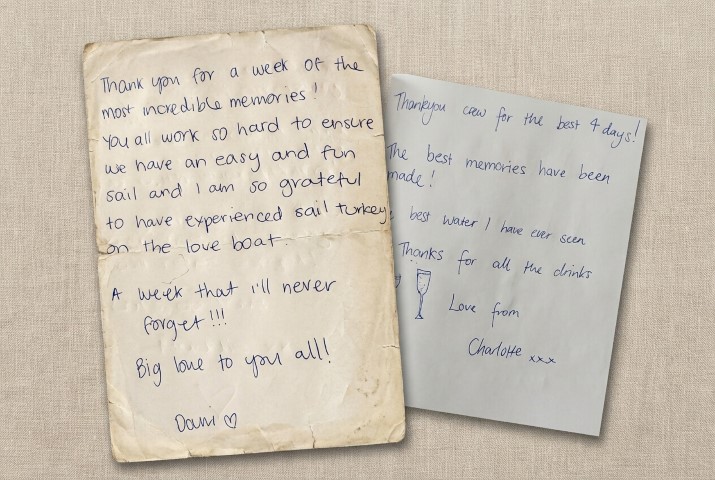 Thank you for a week of the
most incredible memories!
you all work so hard to ensure
we have an easy and fun
sail and I am so grateful
to have experienced sail turkey
on the love boat.
A week that i'll never
forget!!!
Big love to you all!
Dani ♡
Thankyou crew for the best 4 days!
The best memories have been
made!
best water I have ever seen
Thanks for all the drinks
Love from
Charlotte xxx